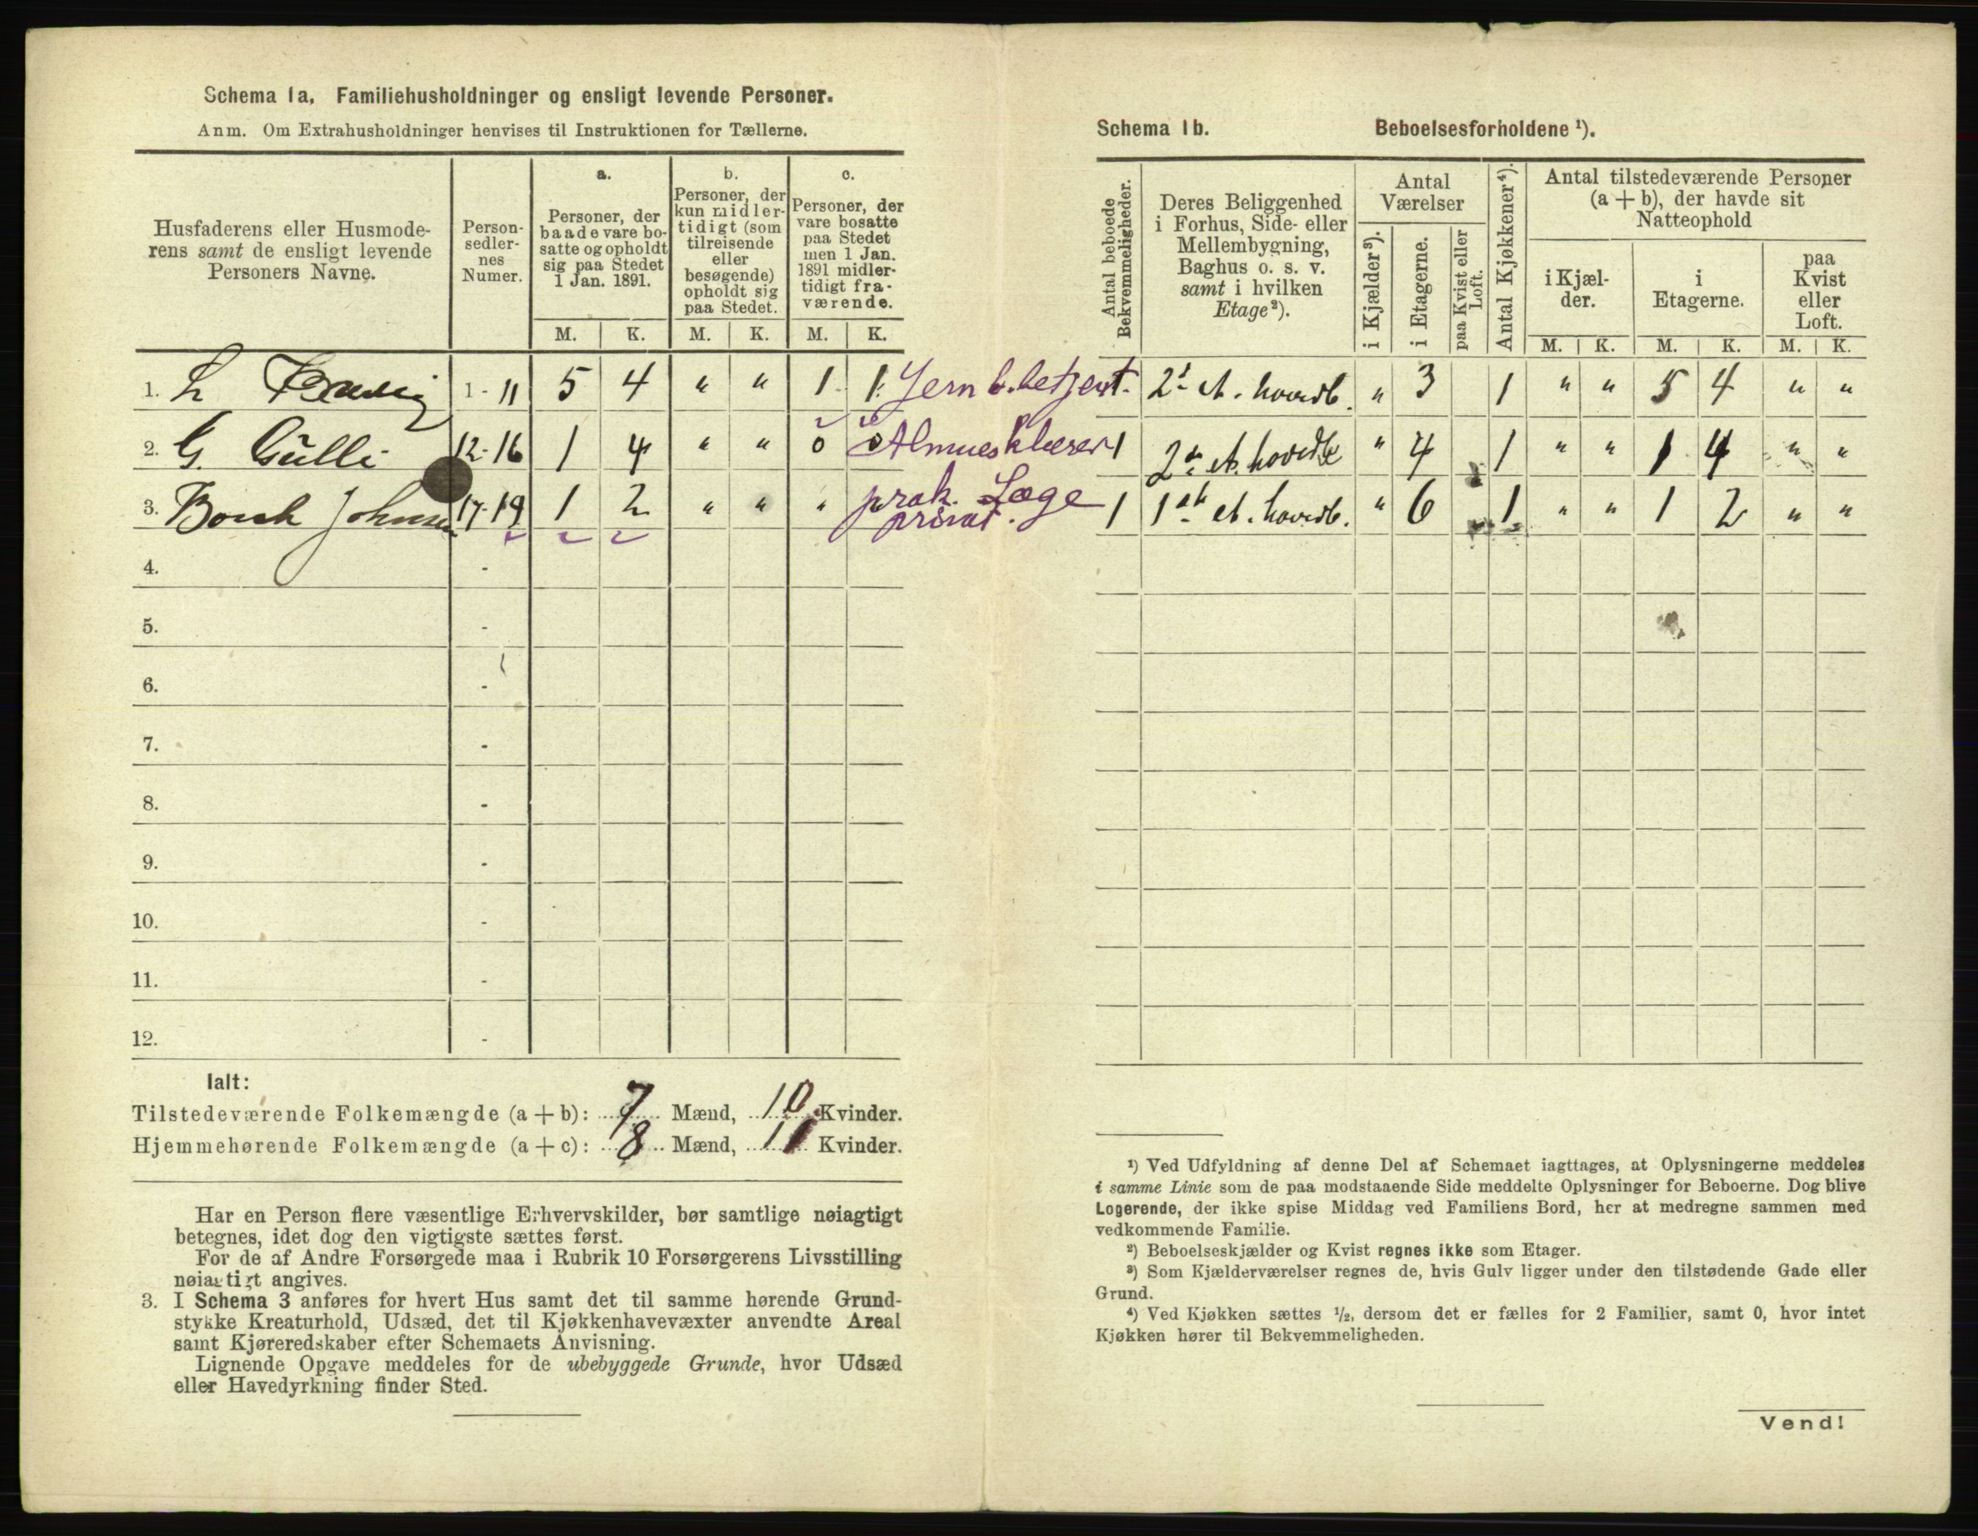 Schema 1a. Familiehusholdninger og ensligt levende Personer.
Anm. Om Extrahusholdninger henvises til Instruktionen for Tællerne.
Husfaderens eller Husmode-
rens samt de ensligt levende
Personers Navne.
Person-
sedler-
nes
Numer.
a.
Personer, der
baade vare bo-
satte og opholdt
sig paa Stedet
1 Jan. 1891.
b.
Personer, der
kun midler-
tidigt (som
tilreisende
eller
besøgende)
opholdt sig
paa Stedet.
c.
Personer, der
vare bosatte
paa Stedet
men 1 Jan.
1891 midler-
tidigt fra-
værende.
M. K. M. K. M. K.
1. L 1-11 5 4 " " 1 1
2. G. Gülli 12-16 1 4 " " 0 0 Almueskolelærer
3. Borch Johnsen 17-19 1 2 " " " prak. Læge
privat.
4. -
5. -
6. -
7. -
8. -
9. -
10. -
11. -
12. -
Ialt:
Tilstedeværende Folkemængde (a + b): 7 Mænd, 10 Kvinder.
Hjemmehørende Folkemængde (a + c): 8 Mænd, 11 Kvinder.
Har en Person flere væsentlige Erhvervskilder, bør samtlige nøiagtigt
betegnes, idet dog den vigtigste sættes først.
For de af Andre Forsørgede maa i Rubrik 10 Forsørgerens Livsstilling
nøiagtigt angives.
3. I Schema 3 anføres for hvert Hus samt det til samme hørende Grund-
stykke Kreaturhold, Udsæd, det til Kjøkkenhavevæxter anvendte Areal
samt Kjøreredskaber efter Schemaets Anvisning.
Lignende Opgave meddeles for de ubebyggede Grunde, hvor Udsæd
eller Havedyrkning finder Sted.
Schema 1b. Beboelsesforholdene ¹).
Antal beboede
Bekvemmeligheder.
Deres Beliggenhed
i Forhus, Side- eller
Mellembygning,
Baghus o. s. v.
samt i hvilken
Etage²).
Antal
Værelser
i Kjælder³).
i Etagerne.
paa Kvist eller
Loft.
Antal Kjøkkener⁴).
Antal tilstedeværende Personer
(a + b), der havde sit
Natteophold
i Kjæl-
der.
i
Etagerne.
paa
Kvist
eller
Loft.
M. K. M. K. M. K.
2d et. hovedb. " 3 1 " " 5 4 " "
1 2de et. hovedb " 4 1 " " 1 4 " "
1 1ste et. hovedb. " 6 1 " " 1 2 " "
¹) Ved Udfyldning af denne Del af Schemaet iagttages, at Oplysningerne meddeles
i samme Linie som de paa modstaaende Side meddelte Oplysninger for Beboerne. Dog blive
Logerende, der ikke spise Middag ved Familiens Bord, her at medregne sammen med
vedkommende Familie.
²) Beboelseskjælder og Kvist regnes ikke som Etager.
³) Som Kjælderværelser regnes de, hvis Gulv ligger under den tilstødende Gade eller
Grund.
⁴) Ved Kjøkken sættes ½, dersom det er fælles for 2 Familier, samt 0, hvor intet
Kjøkken hører til Bekvemmeligheden.
Vend!